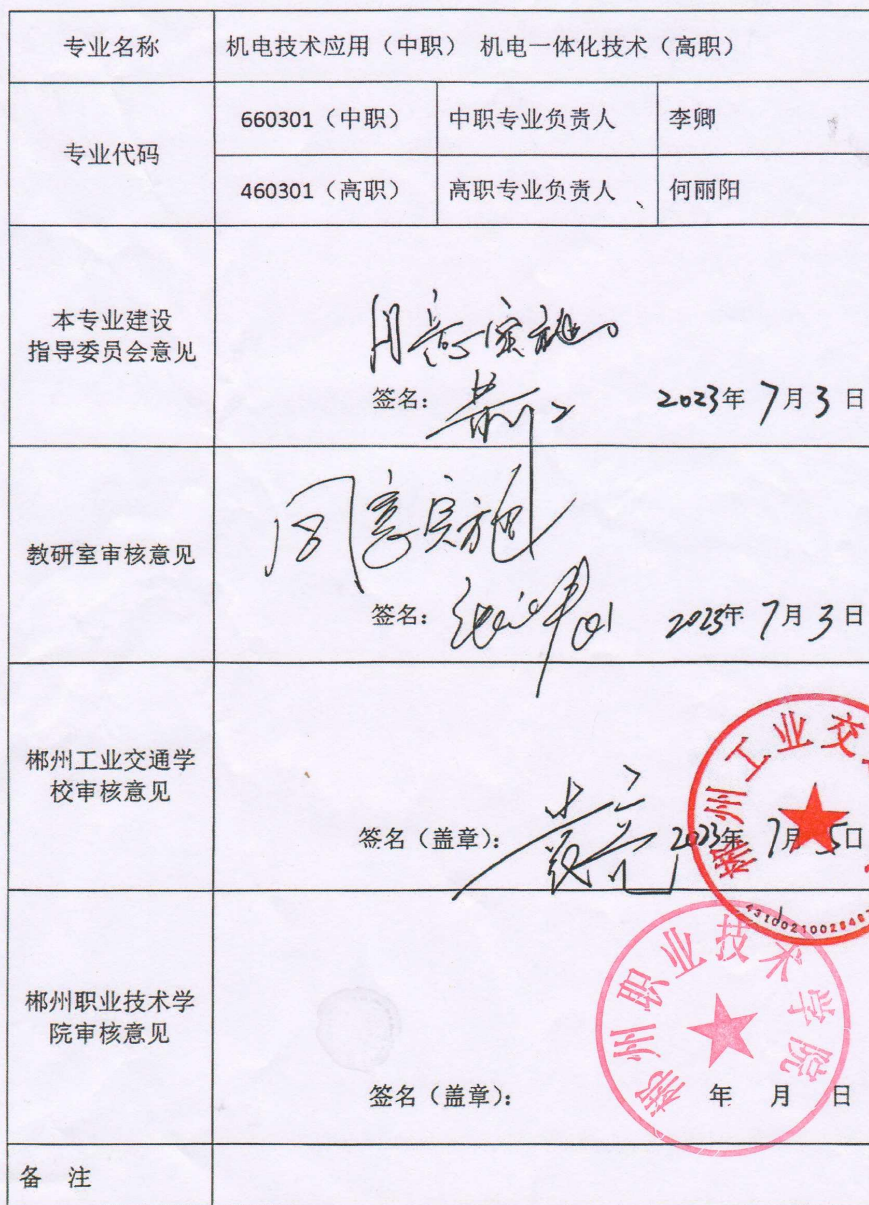 专业名称
机电技术应用（中职） 机电一体化技术（高职）
专业代码
660301（中职） 中职专业负责人 李卿
460301（高职） 高职专业负责人 、 何丽阳
本专业建设
指导委员会意见
同意实施。
签名： 2023年 7月 3 日
教研室审核意见
同意实施
签名： 2023年 7月 3 日
郴州工业交通学
校审核意见
签名（盖章）： 2023年 7月 5日
郴州工业交
郴州职业技术学
院审核意见
郴州职业技术学院
签名（盖章）： 年 月 日
备 注